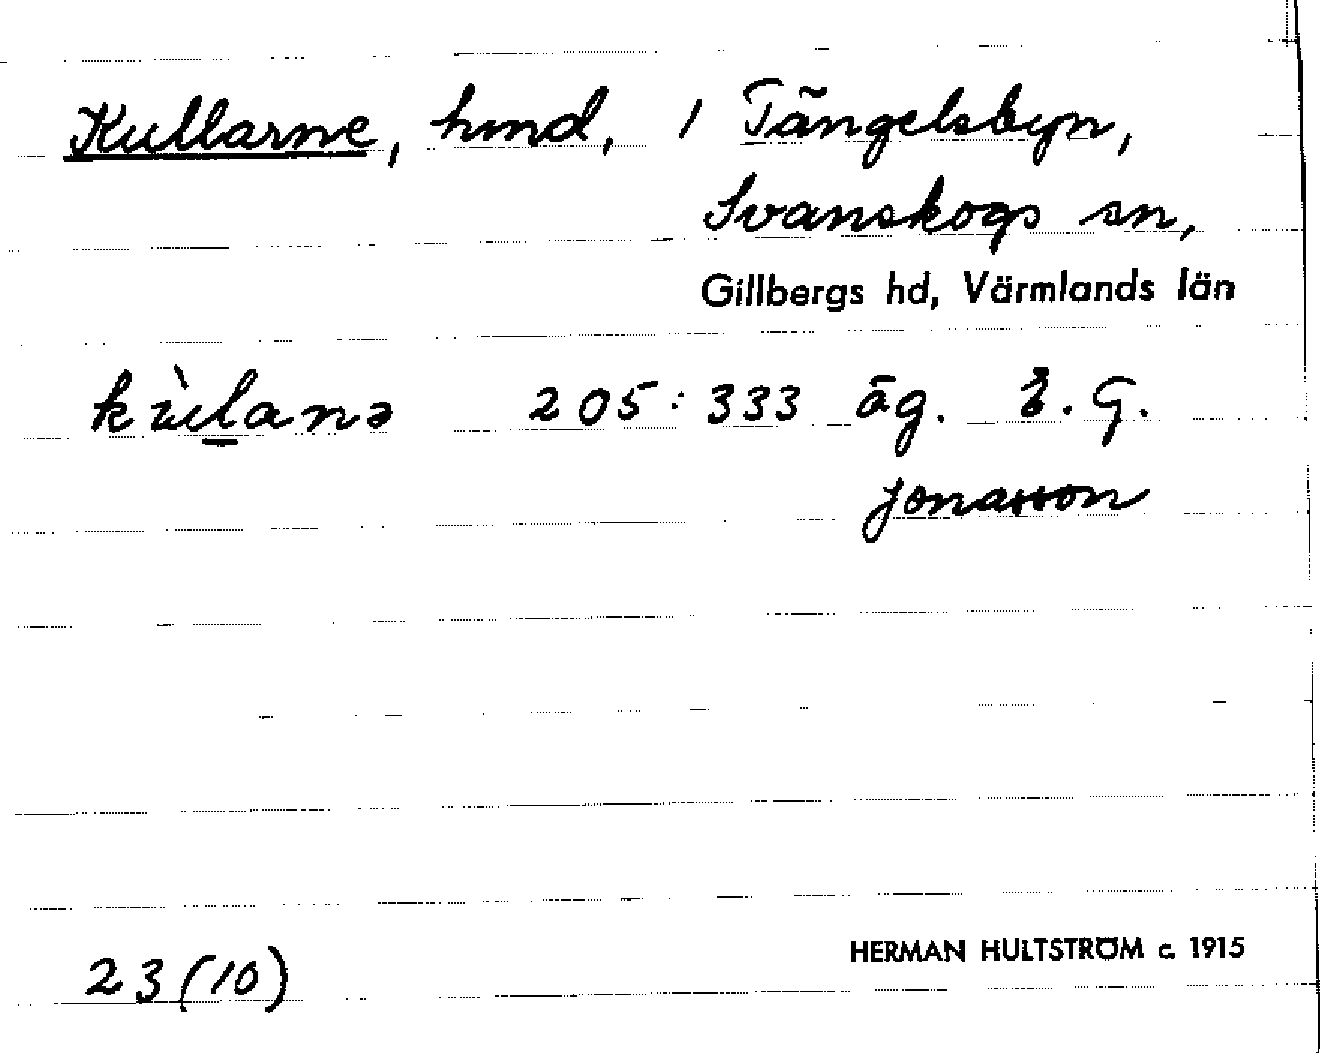 Kullarne, hmd, 1 Tängelsbyn,
Svanskogs sn,
Gillbergs hd, Värmlands län
205:333 äg. E. G.
Jonasson
23 (10)
HERMAN HULTSTRÖM c. 1915